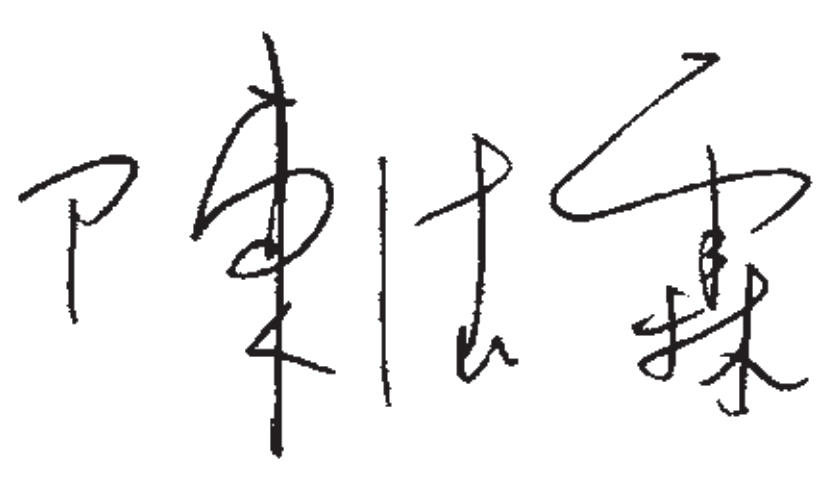 陳法霖